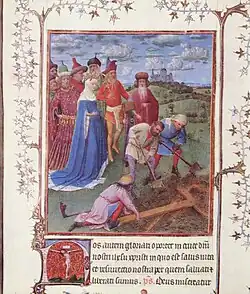 os autem gloriari oportet in cruce dñi
nostri iesu xpristi in quo est salus vita
et resurrectio nostra per quem saluati et
liberati sumus. ps. Deus misereatur